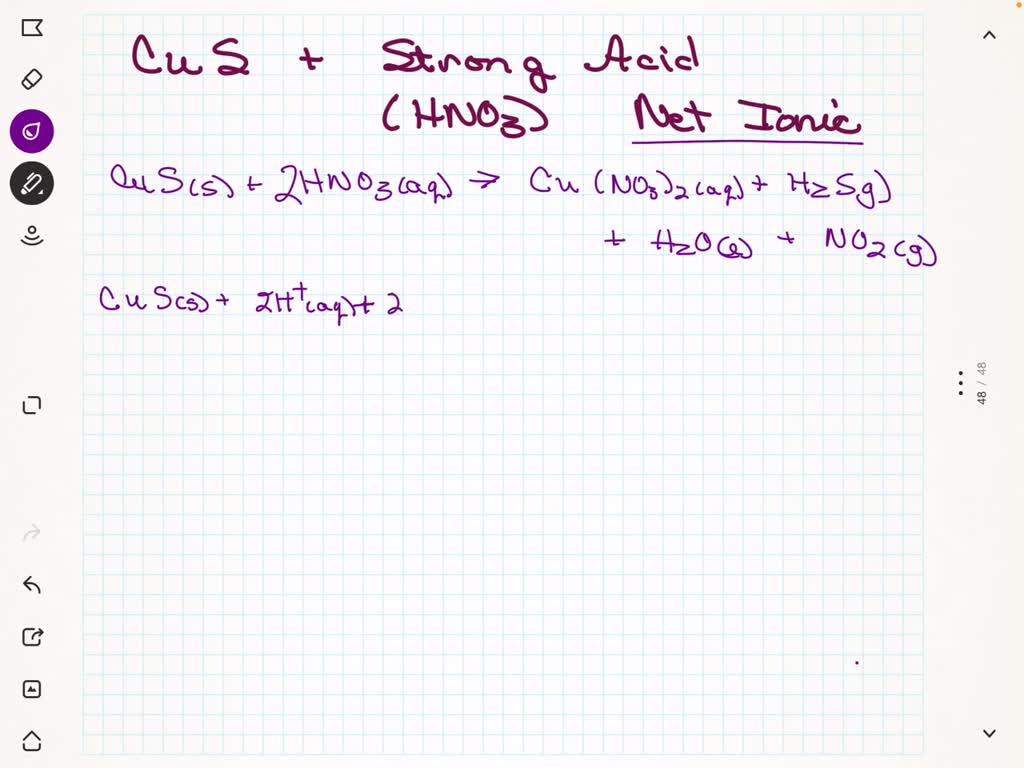 CuS + Strong Acid
(HNO3) Net Ionic
CuS(s) + 2HNO3(aq) → Cu(NO3)2(aq) + H2Sg)
+ H2O(l) + NO2(g)
CuS(s) + 2H+(aq) + 2
48 / 48